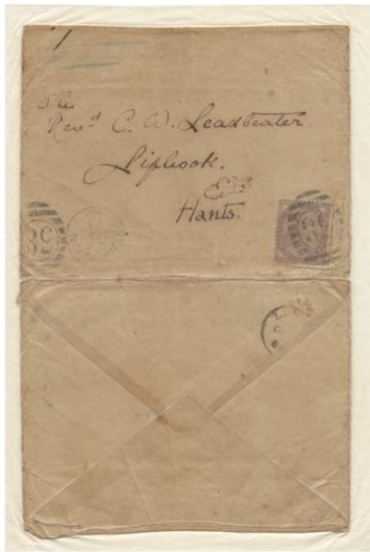 The
Revd C. W. Leadbeater
Liphook.
Hants.